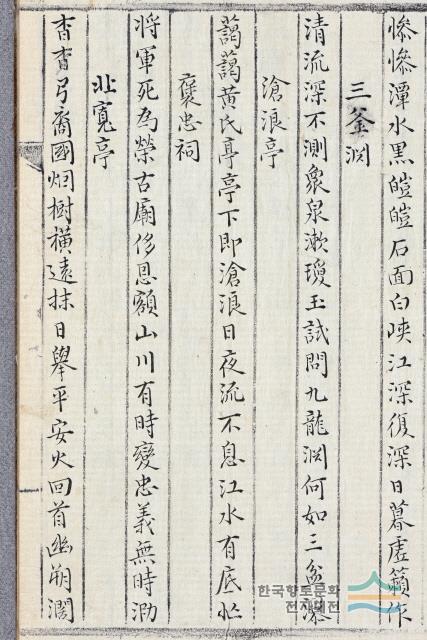 慘慘潭水黑皚皚石面白峽江深復深日暮虛籟作
三釜淵
清流深不測衆泉漱瓊玉試問九龍淵何如三釜瀑
滄浪亭
藹藹黃氏亭亭下即滄浪日夜流不息江水有底忙
褒忠祠
將軍死為榮古廟侈恩額山川有時變忠義無時泐
北寬亭
杳杳弓裔國烟樹橫遠抹日舉平安火回首幽朔濶
한국향토문화
전자대전